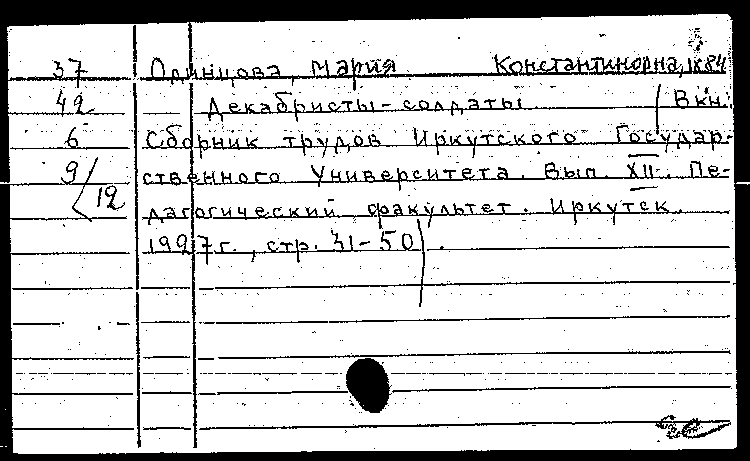 37 Одинцова, Мария Константиновна, 1884
42 Декабристы-солдаты (Вкн.:
6 Сборник трудов Иркутского Государ-
9/12 ственного Университета. Вып. XII. Пе-
дагогический факультет. Иркутск.
1927 г., стр. 31-50).